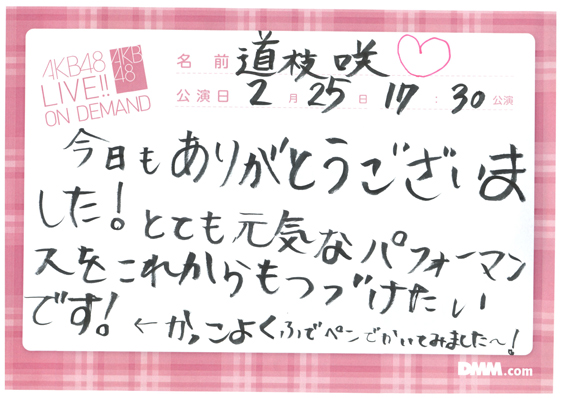 AKB48
LIVE!!
ON DEMAND
AKB
48
名前 道枝咲
公演日 2月25日 17:30公演
今日もありがとうございま
した!とても元気なパフォーマン
スをこれからもつづけたい
です!←かっこよくふでペンでかいてみました〜!
DMM.com